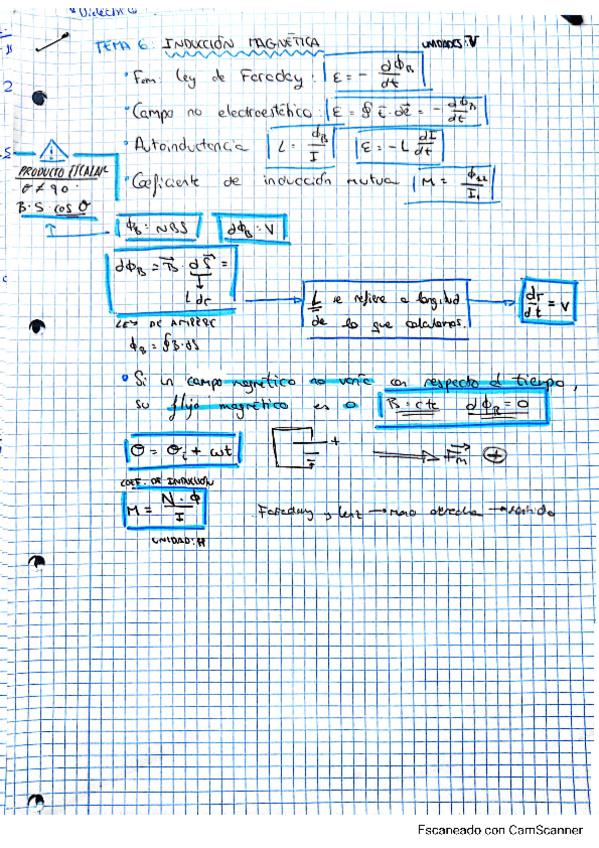 Dieléctric
TEMA 6: INDUCCIÓN MAGNÉTICA UNIDADES: V
• Fem: Ley de Faraday: ε = - dΦB/dt
• Campo no electroestático: ε = ∮ E · dl = - dΦB/dt
• Autoinductancia L = ΦB/I ε = - L dI/dt
PRODUCTO ESCALAR
θ ≠ 90º
B·S cos θ
• Coeficiente de inducción mutua M = Φ12/I1
ΦB = NBS dΦB: V
dΦB = B · dS =
L dr
L se refiere a longitud
de lo que calculamos.
dr/dt = V
LEY DE AMPERE
ΦB = ∮B·dS
• Si un campo magnético no varía con respecto al tiempo,
su flujo magnético es 0 B = ct dΦB = 0
θ = θi + ωt
+
Fm +
COEF. DE INDUCCIÓN
M = N·Φ/I
Faraday y Lenz → mano derecha → sentido
UNIDAD: H
Escaneado con CamScanner